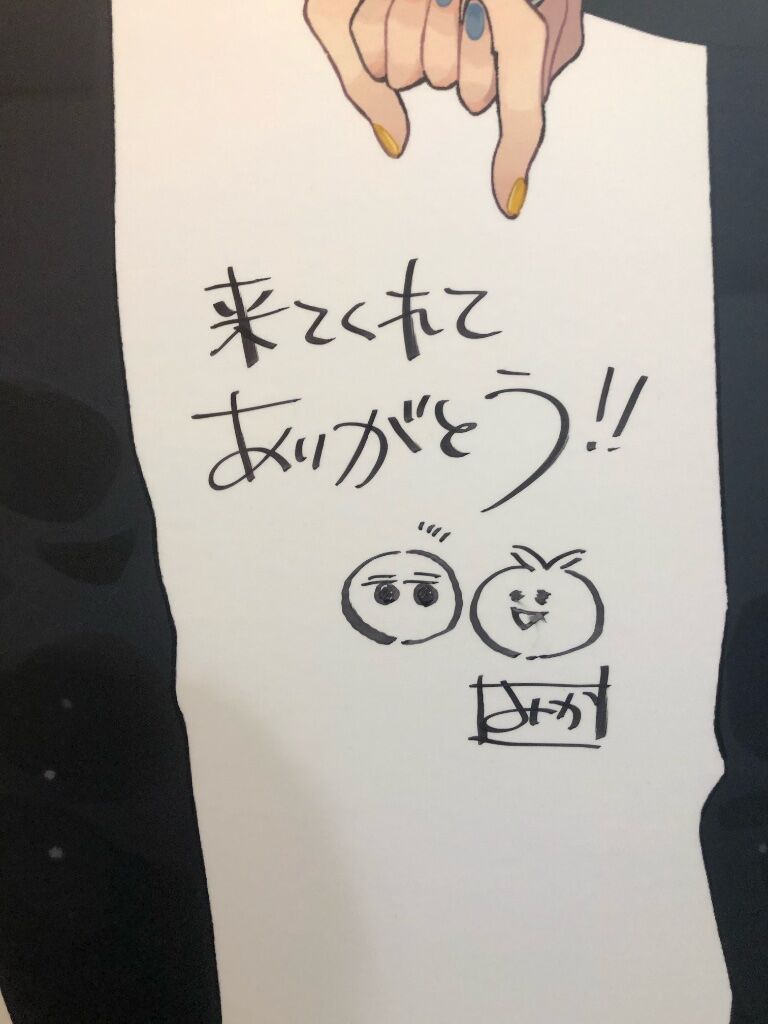 来てくれて
ありがとう!!
みか